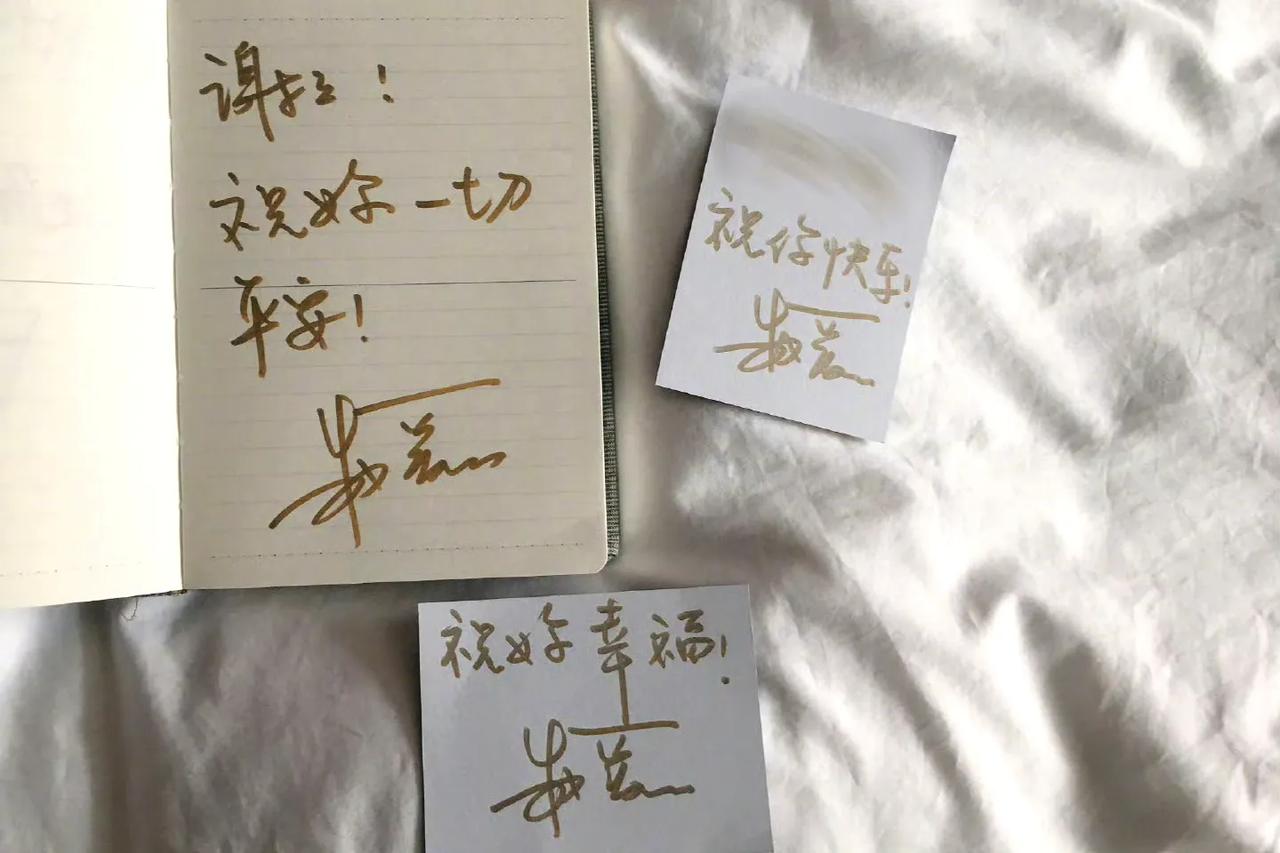 谢谢！
祝妳一切
平安！
祝你快乐！
祝妳幸福！